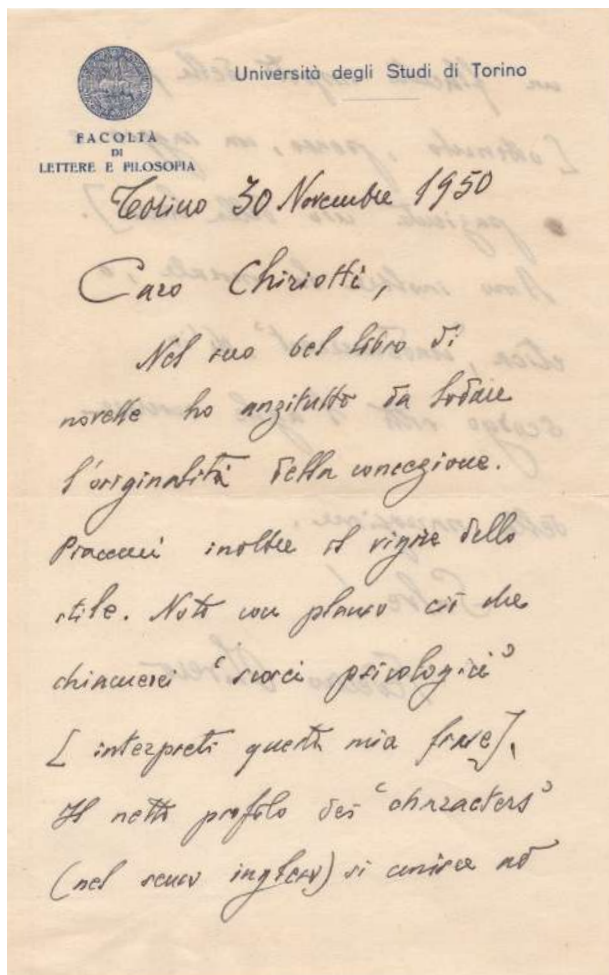 Università degli Studi di Torino
FACOLTÀ
DI
LETTERE E FILOSOFIA
Torino 30 Novembre 1950
Caro Chiriotti,
Nel suo bel libro di
novelle ho anzitutto da lodare
l'originalità della concezione.
Piacemi inoltre il vigore dello
stile. Noto con plauso ciò che
chiamerei "scorci psicologici"
[interpreti questa mia frase].
Il netto profilo dei "characters"
(nel senso inglese) si unisce ad